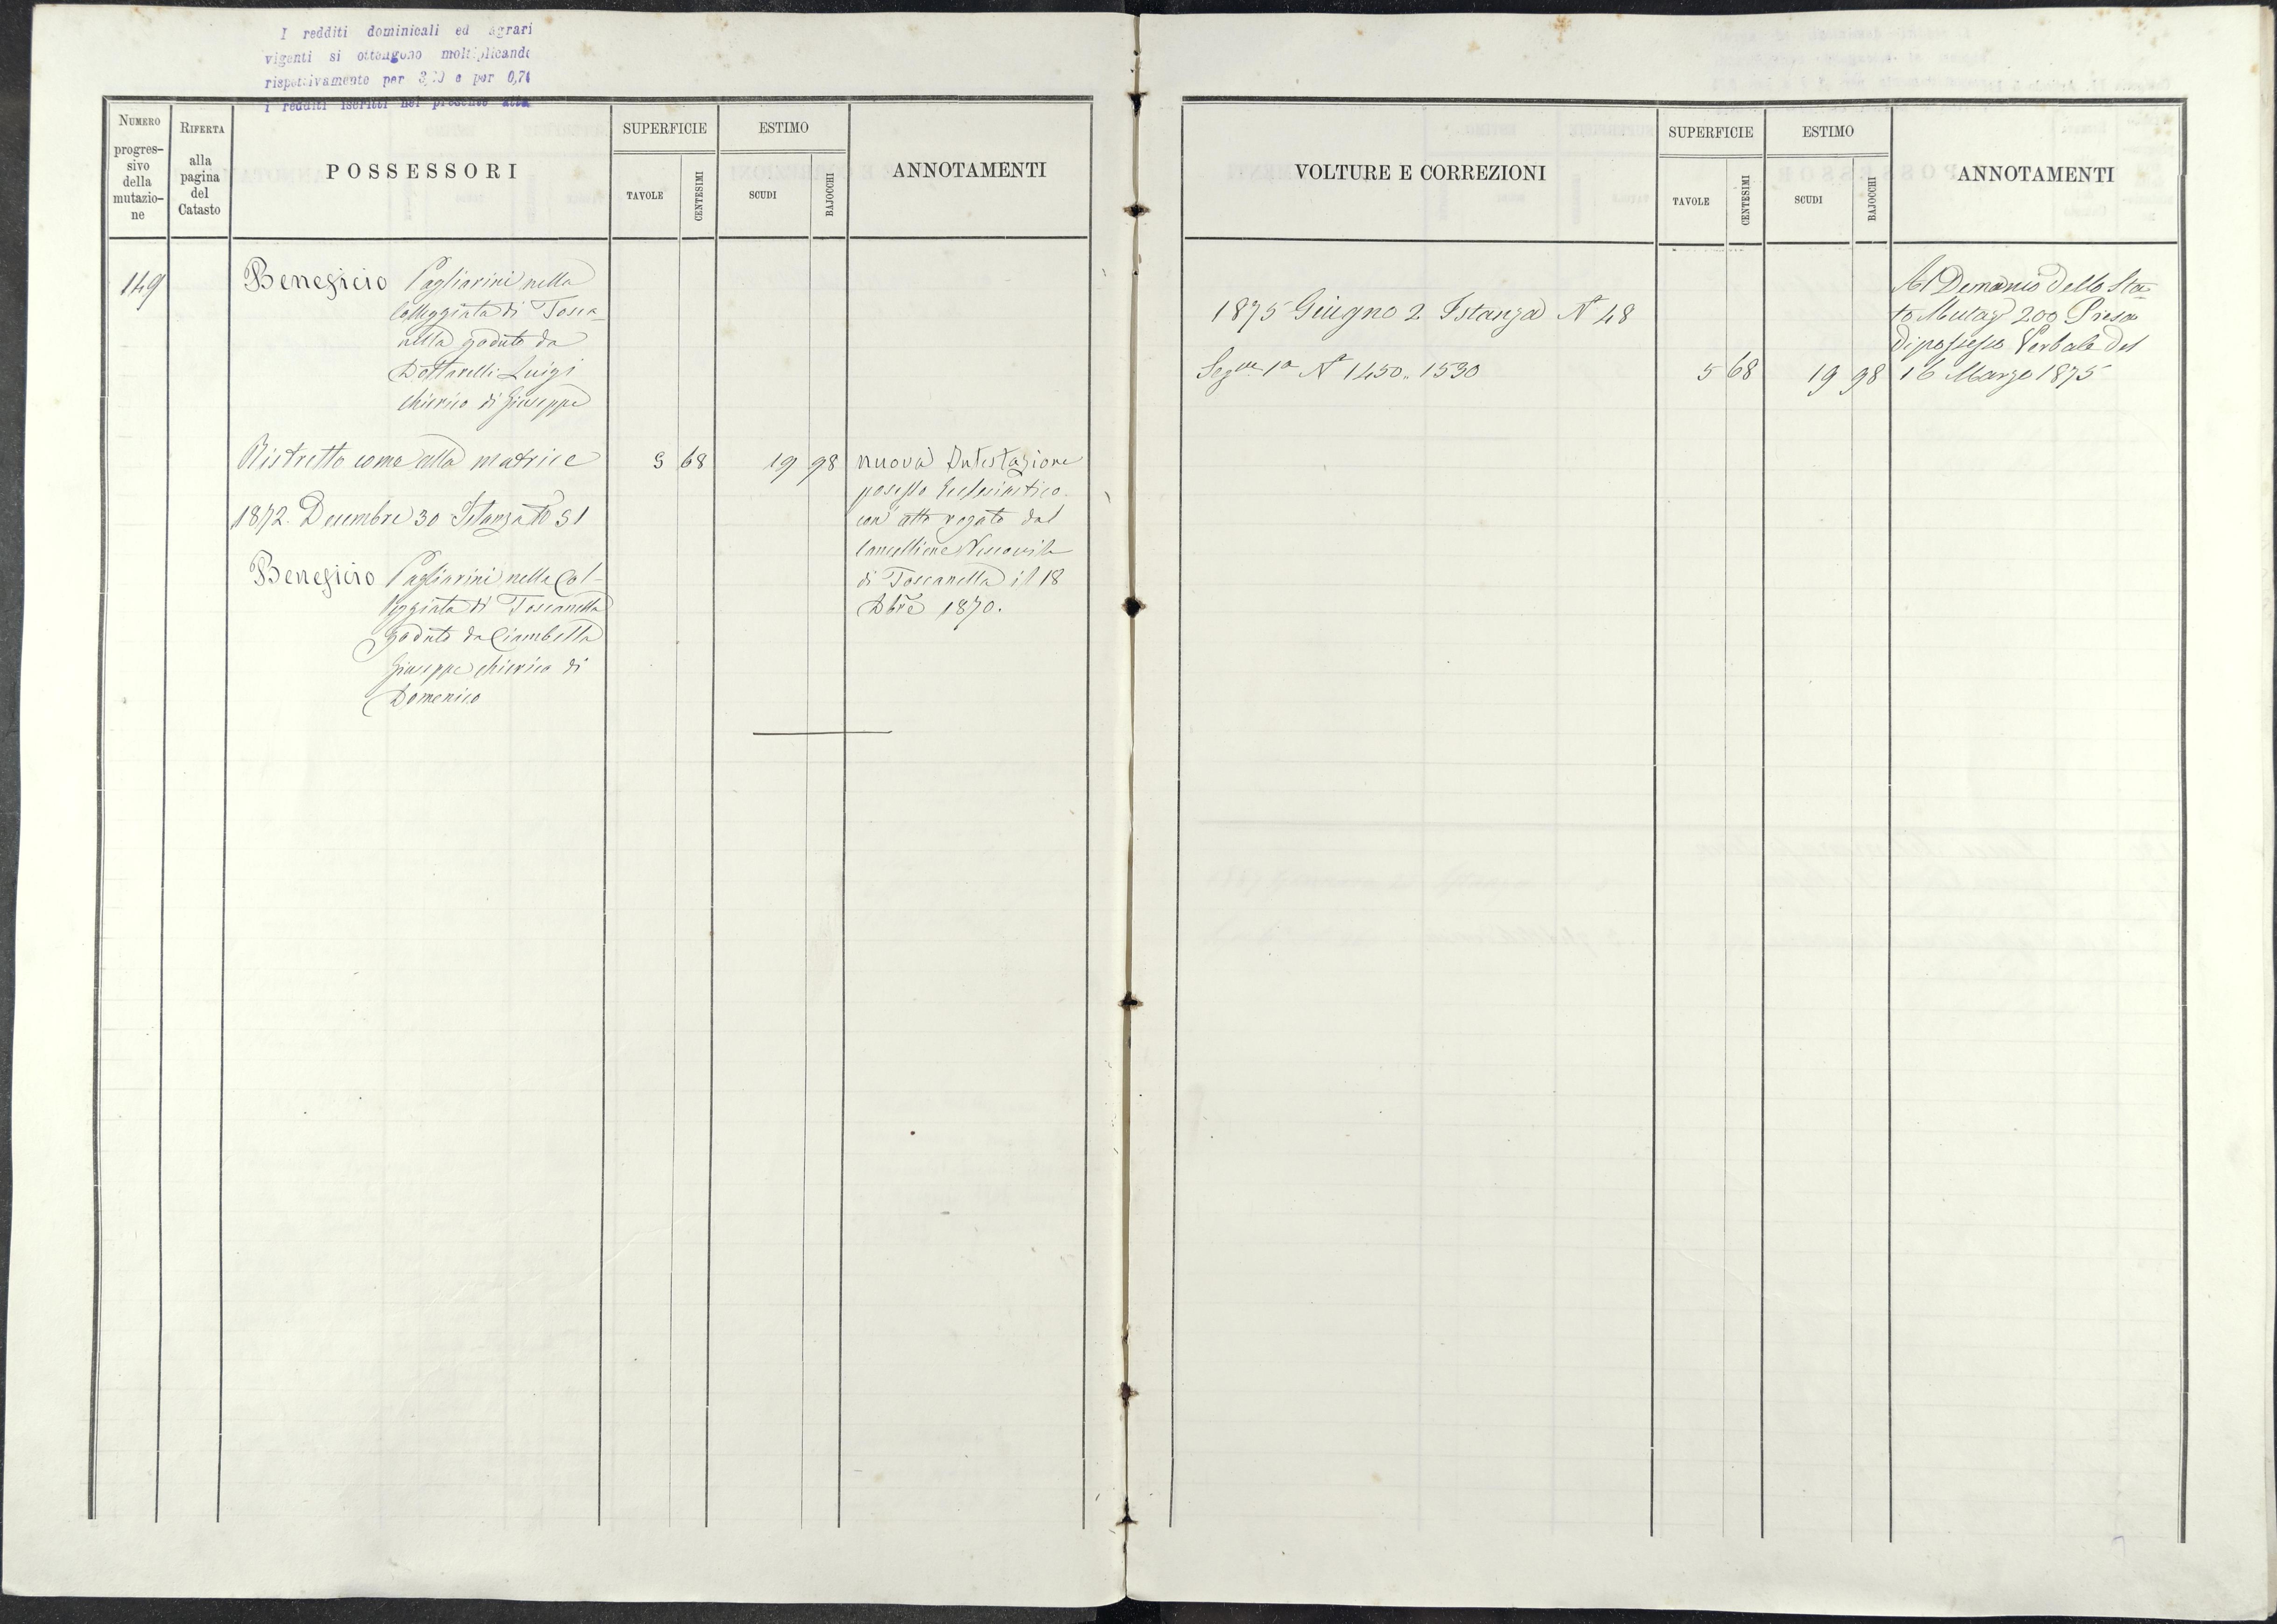 I redditi dominicali ed agrari
vigenti si ottengono moltiplicando
rispettivamente per 3,20 e per 0,74
i redditi iscritti nel presente atto
NUMERO progressivo della mutazione
RIFERTA alla pagina del Catasto
POSSESSORI
SUPERFICIE
TAVOLE
CENTESIMI
ESTIMO
SCUDI
BAJOCCHI
ANNOTAMENTI
149
Beneficio Pagliarini nella
Colleggiata di Tosca-
nella goduto da
Dottarelli Luigi
chierico di Giuseppe
Ristretto come alla matrice 5 68 19 98
1872. Decembre 30 Istanza N 51
Beneficio Pagliarini nella Col-
leggiata di Toscanella
goduto da Ciambella
Giuseppe chierico di
Domenico
nuova Intestazione
possesso Ecclesiastico.
con atto rogato dal
Cancelliere Vescovile
di Toscanella il 18
Dbre 1870.
VOLTURE E CORREZIONI
SUPERFICIE
TAVOLE
CENTESIMI
ESTIMO
SCUDI
BAJOCCHI
ANNOTAMENTI
1875 Giugno 2 Istanza N° 48
Sez 1a N° 1450.. 1530 5 68 19 98
Al Demanio dello Sta-
to Mutaz 200 Presa
di possesso Verbale del
16 Marzo 1875